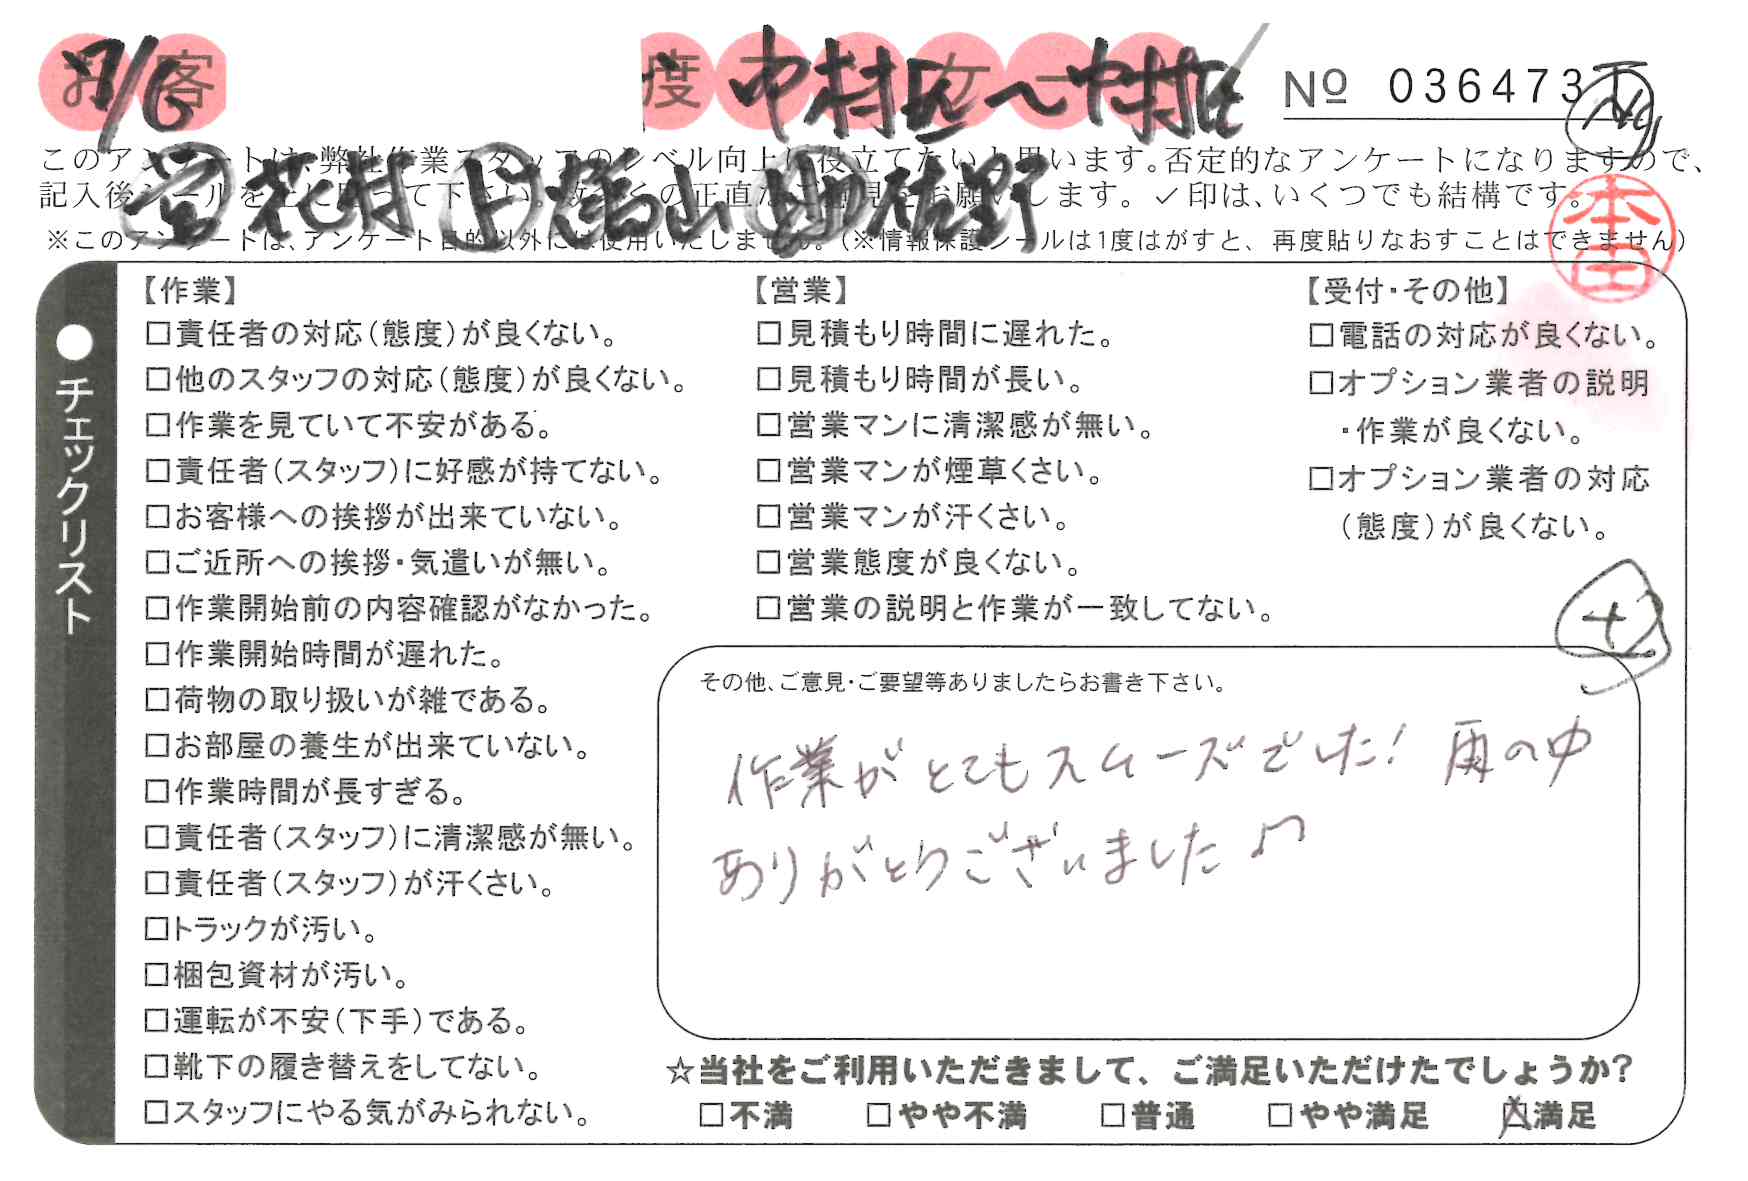 お客 度 ア ケー
7/6 中村区〜中村区
№ 036473
このアンケートは、弊社作業スタッフのレベル向上に役立てたいと思います。否定的なアンケートになりますので、
記入後シールを上に貼って下さい。数多くの正直なご意見をお願いします。✓印は、いくつでも結構です。
花村 佐野
※このアンケートは、アンケート目的以外には使用いたしません。(※情報保護シールは1度はがすと、再度貼りなおすことはできません)
本田
●チェックリスト
【作業】
□責任者の対応(態度)が良くない。
□他のスタッフの対応(態度)が良くない。
□作業を見ていて不安がある。
□責任者(スタッフ)に好感が持てない。
□お客様への挨拶が出来ていない。
□ご近所への挨拶・気遣いが無い。
□作業開始前の内容確認がなかった。
□作業開始時間が遅れた。
□荷物の取り扱いが雑である。
□お部屋の養生が出来ていない。
□作業時間が長すぎる。
□責任者(スタッフ)に清潔感が無い。
□責任者(スタッフ)が汗くさい。
□トラックが汚い。
□梱包資材が汚い。
□運転が不安(下手)である。
□靴下の履き替えをしてない。
□スタッフにやる気がみられない。
【営業】
□見積もり時間に遅れた。
□見積もり時間が長い。
□営業マンに清潔感が無い。
□営業マンが煙草くさい。
□営業マンが汗くさい。
□営業態度が良くない。
□営業の説明と作業が一致してない。
【受付・その他】
□電話の対応が良くない。
□オプション業者の説明
・作業が良くない。
□オプション業者の対応
(態度)が良くない。
その他、ご意見・ご要望等ありましたらお書き下さい。
作業がとてもスムーズでした! 雨の中
ありがとうございました♪
☆当社をご利用いただきまして、ご満足いただけたでしょうか?
□不満 □やや不満 □普通 □やや満足 □満足